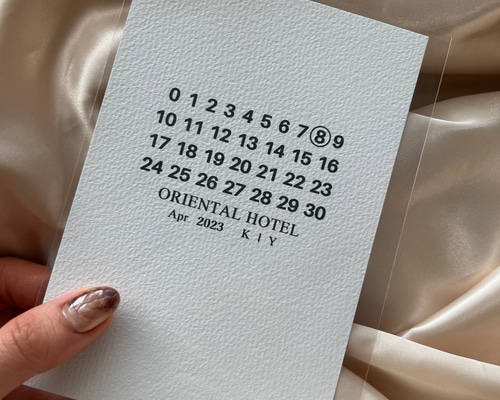 0 1 2 3 4 5 6 7 8 9
10 11 12 13 14 15 16
17 18 19 20 21 22 23
24 25 26 27 28 29 30
ORIENTAL HOTEL
Apr 2023 K | Y